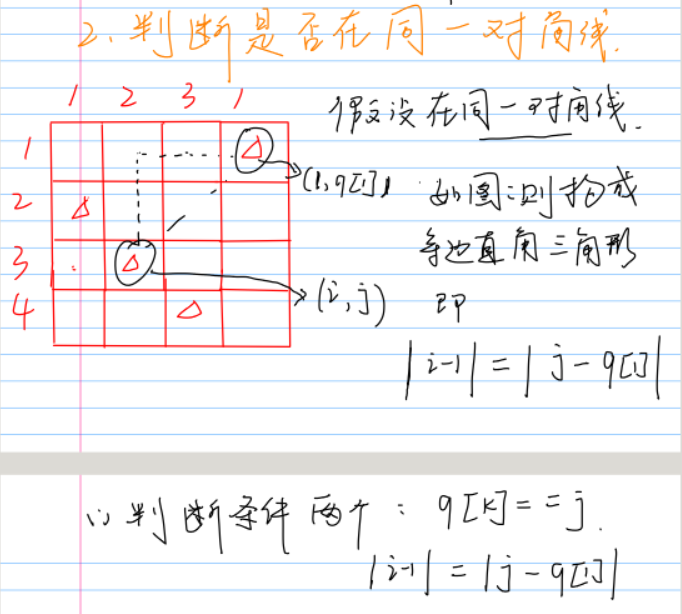 2、判断是否在同一对角线.
1 2 3 1
假设在同一对角线.
1
(1,q[1])
如图:则构成
2
等边直角三角形
3
(i,j)
即
4
|i-1|=|j-q[1]|
判断条件两个:q[k]==j.
|i-1|=|j-q[1]|